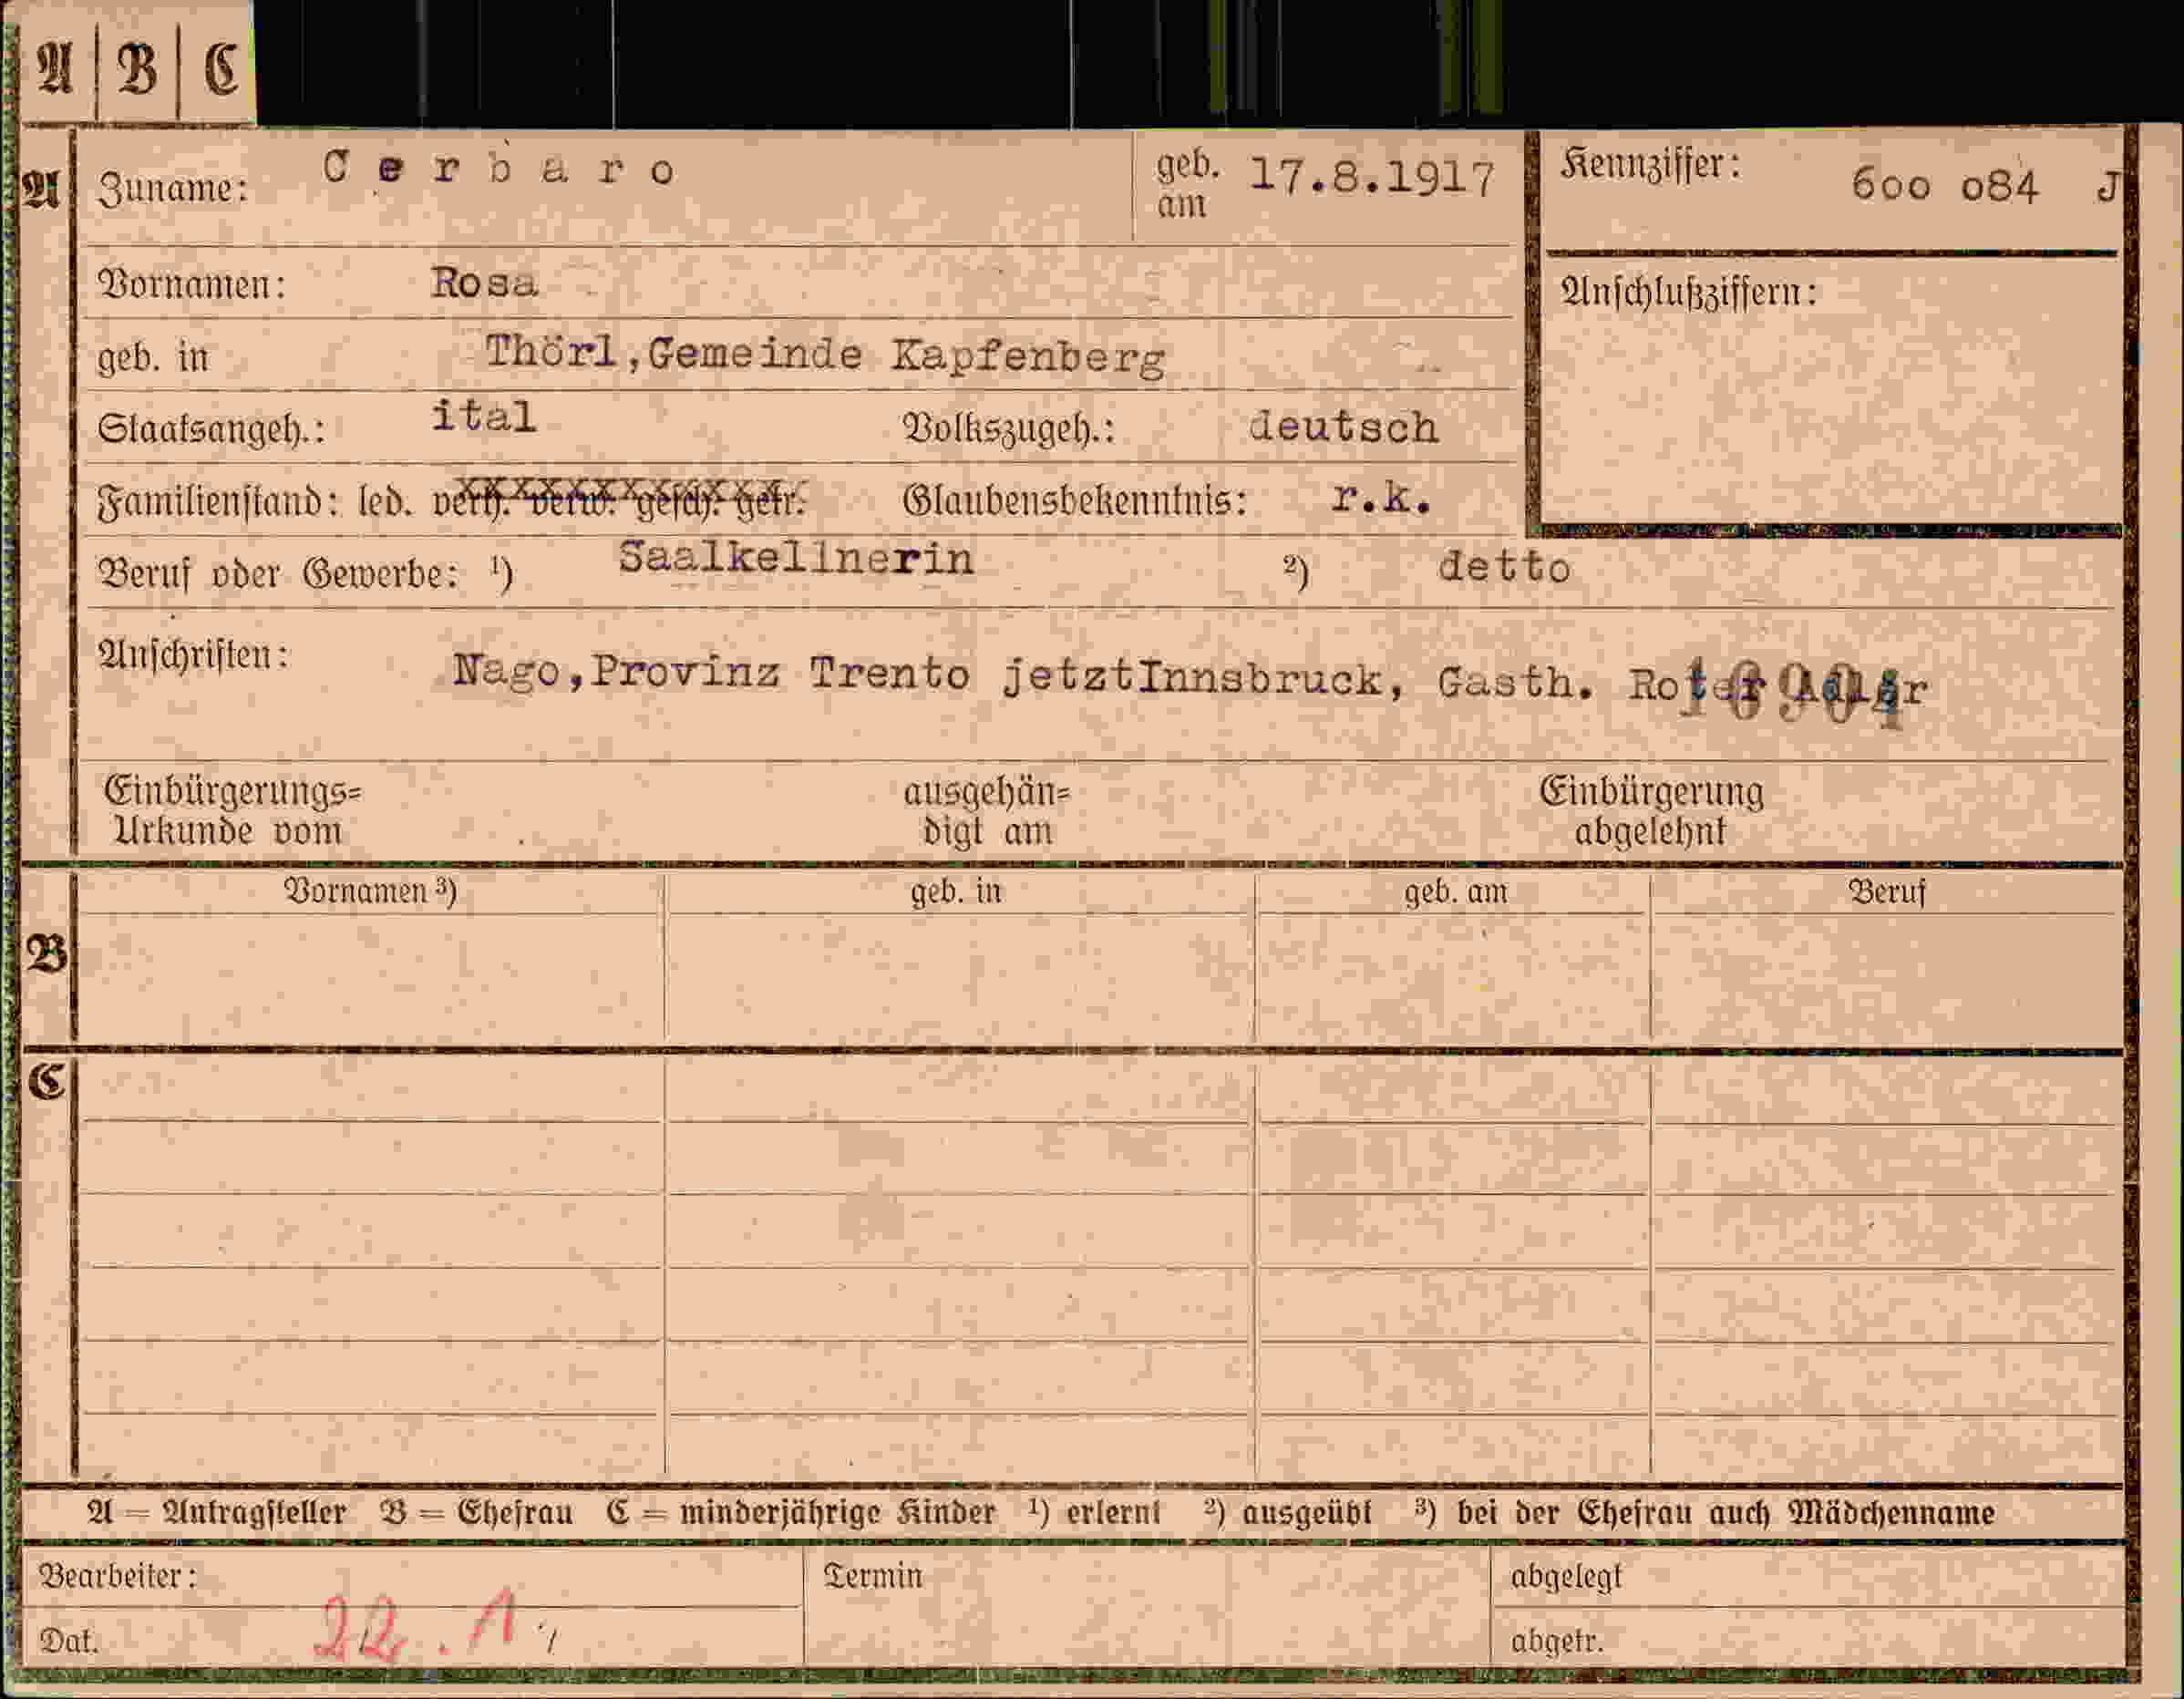 A B C
A Zuname: Cerbaro geb. am 17.8.1917 Kennziffer: 600 084 J
Vornamen: Rosa Anschlußziffern:
geb. in Thörl,Gemeinde Kapfenberg
Staatsangeh.: ital Volkszugeh.: deutsch
Familienstand: led. verh. verw. gesch. getr. Glaubensbekenntnis: r.k.
Beruf oder Gewerbe: ¹) Saalkellnerin ²) detto
Anschriften: Nago,Provinz Trento jetztInnsbruck, Gasth. Roter Adler
Einbürgerungs= ausgehän= Einbürgerung
Urkunde vom digt am abgelehnt
Vornamen ³) geb. in geb. am Beruf
B
C
A = Antragsteller B = Ehefrau C = minderjährige Kinder ¹) erlernt ²) ausgeübt ³) bei der Ehefrau auch Mädchenname
Bearbeiter: Termin abgelegt
Dat. 22.1. abgetr.